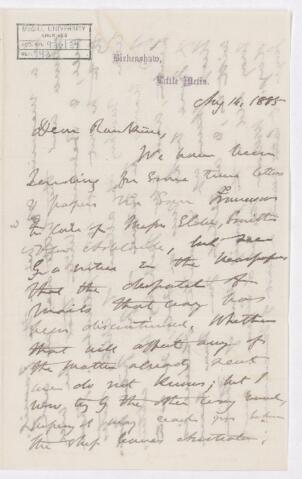 McGILL UNIVERSITY
ARCHIVES
ACC. NO.
Birkenshaw,
Little Metis.
Aug 16, 1885
Dear Rankine,
We have been
sending for some time letters
& papers via San Francisco
to care of Messrs Elder, Smith
& Co Adelaide, but see
by a notice in the newspaper
that the despatch of
mails that way has
been discontinued. Whether
that will affect any of
the matter already sent
we do not know; but I
now try the other way
hoping it may reach you before
the ship leaves Australia.